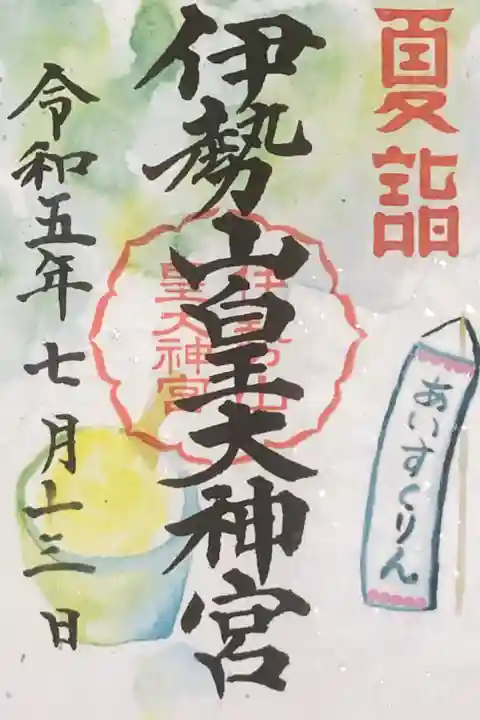 夏詣
伊勢山皇大神宮
伊勢山
皇大神宮
あいすくりん
令和五年七月十三日